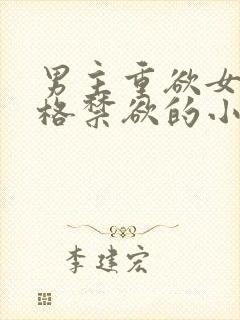 男主重欲女
格禁欲的小
李建宏